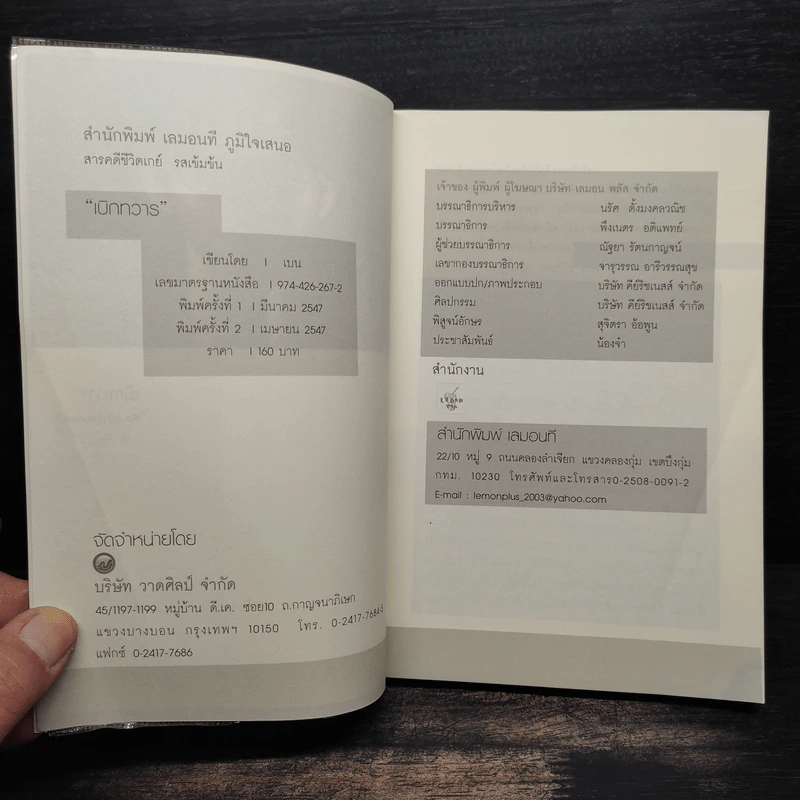 สำนักพิมพ์ เลมอนที ภูมิใจเสนอ
สารคดีชีวิตเกย์ รสเข้มข้น
"เบิกทวาร"
เขียนโดย I เบน
เลขมาตรฐานหนังสือ I 974-426-267-2
พิมพ์ครั้งที่ 1 I มีนาคม 2547
พิมพ์ครั้งที่ 2 I เมษายน 2547
ราคา I 160 บาท
จัดจำหน่ายโดย
บริษัท วาดศิลป์ จำกัด
45/1197-1199 หมู่บ้าน ดี.เค. ซอย10 ถ.กาญจนาภิเษก
แขวงบางบอน กรุงเทพฯ 10150 โทร. 0-2417-7684-5
แฟกซ์ 0-2417-7686
เจ้าของ ผู้พิมพ์ ผู้โฆษณา บริษัท เลมอน พลัส จำกัด
บรรณาธิการบริหาร นริศ ตั้งมงคลวณิช
บรรณาธิการ พึงเนตร อติแพทย์
ผู้ช่วยบรรณาธิการ ณัฐยา รัตนกาญจน์
เลขากองบรรณาธิการ จารุวรรณ อารีวรรณสุข
ออกแบบปก/ภาพประกอบ บริษัท คีย์ริชเนสส์ จำกัด
ศิลปกรรม บริษัท คีย์ริชเนสส์ จำกัด
พิสูจน์อักษร สุจิตรา อ้อพูน
ประชาสัมพันธ์ น้องจ๋า
สำนักงาน
สำนักพิมพ์ เลมอนที
22/10 หมู่ 9 ถนนคลองลำเจียก แขวงคลองกุ่ม เขตบึงกุ่ม
กทม. 10230 โทรศัพท์และโทรสาร0-2508-0091-2
E-mail : lemonplus_2003@yahoo.com